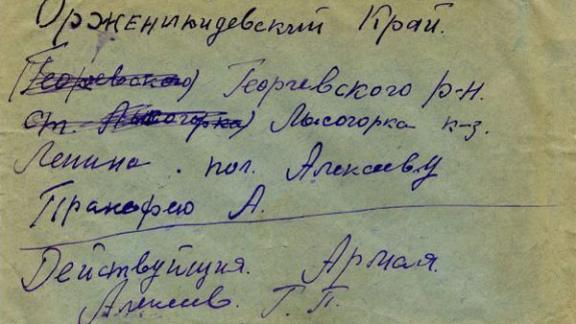 Орженикидевский Край.
(Георевского) Георгевского р-н.
ст. Лысогорка) Лысогорка к-з.
Ленина. пол. Алексеву
Пракофею А.
Действуйщия. Армия.
Алексев. Г. П.